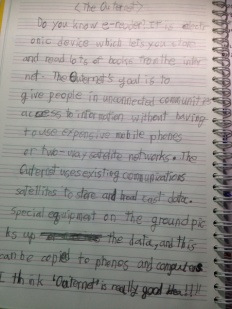 <The Outernet>
Do you know e-reader? It is electr
onic device which lets you store
and read lots of books from the inter
net. The Outernet's goal is to
give people in unconnected communities
access to information without having
to use expensive mobile phones
or two-way satellite networks. The
Outernet uses existing communications
satellites to store and broad cast data.
Special equipment on the ground pic
ks up the data, and this
can be copied to phones and computers
I think "Outernet" is really good idea!!!!